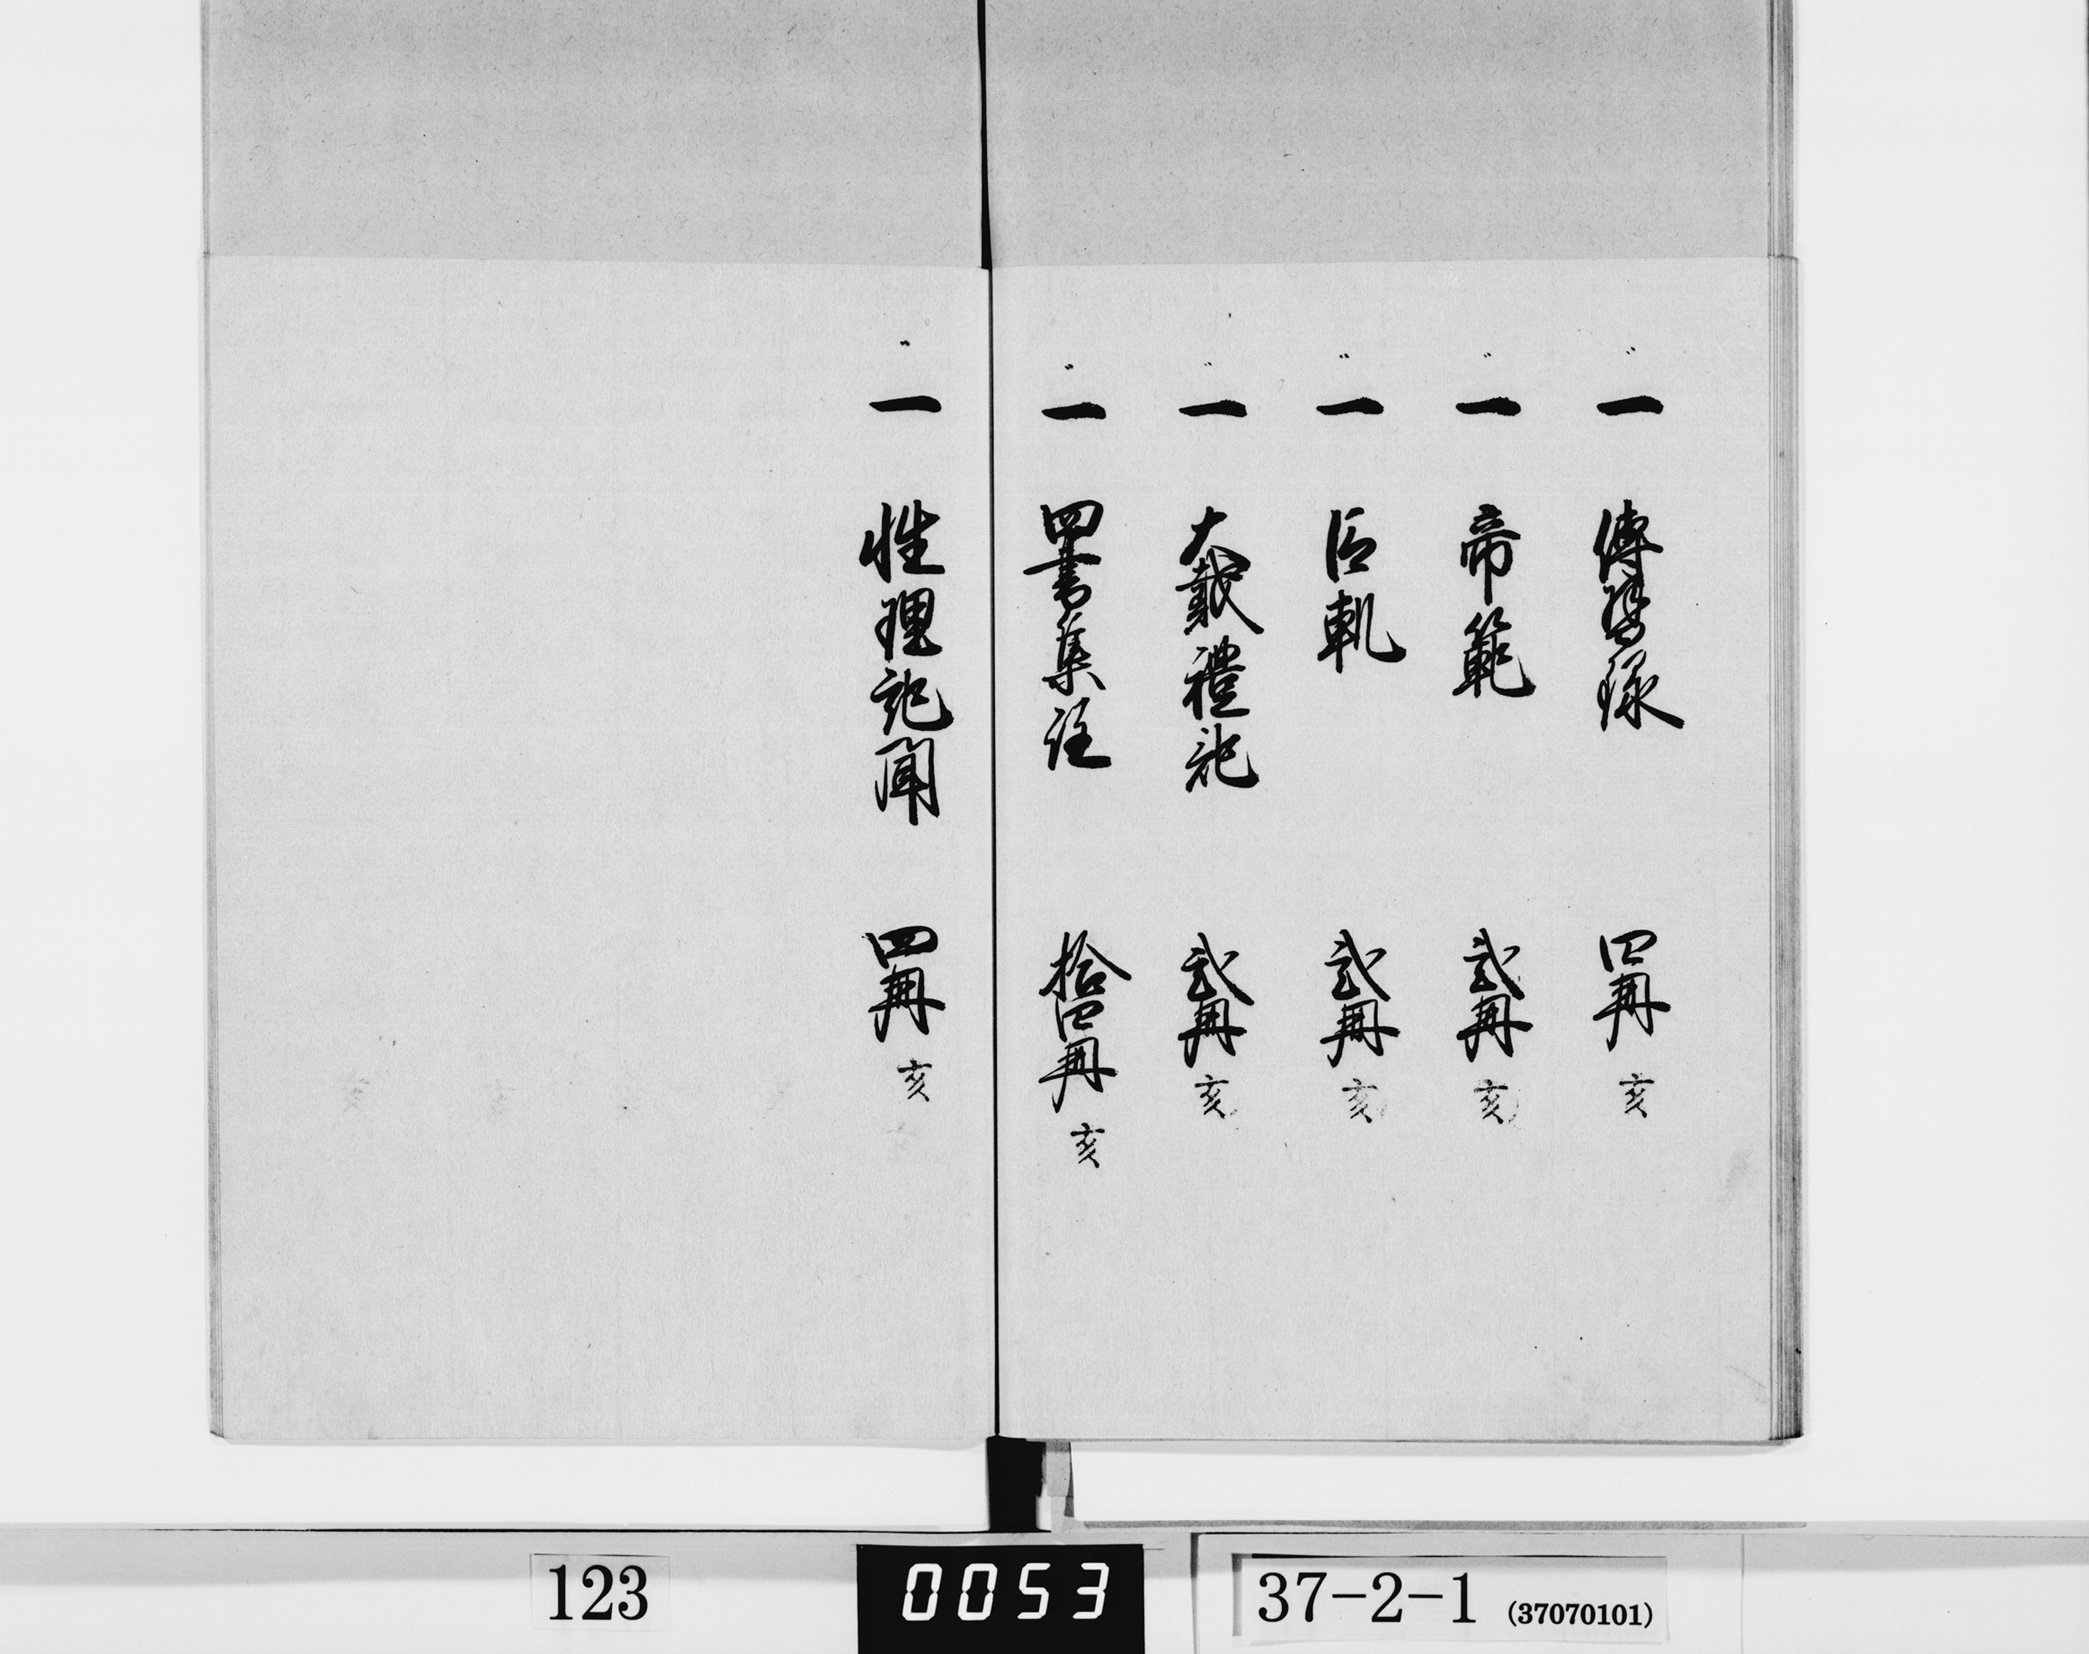 一 傳習録 四冊 亥
一 帝範 弐冊 亥
一 臣軌 弐冊 亥
一 大戴禮記 弐冊 亥
一 四書集註 拾四冊 亥
一 性理記聞 四冊 亥
123
0053
37-2-1 (37070101)